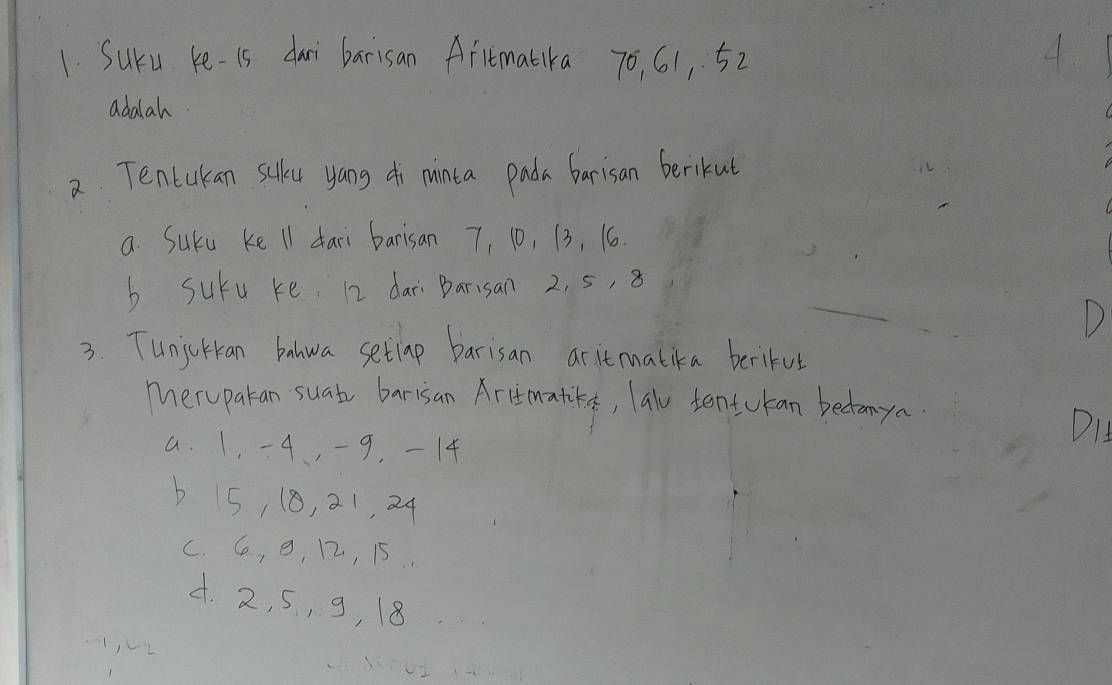 1. Suku ke-15 dari barisan Aritmatika 70, 61, 52
adalah.
2. Tentukan suku yang di minta pada barisan berikut
a. Suku ke 11 dari barisan 7, 10, 13, 16.
b suku ke. 12 dari Barisan 2, 5, 8.
3. Tunjukkan bahwa setiap barisan aritmatika berikut
merupakan suatu barisan Aritmatika, lalu tentukan bedanya.
a. 1, -4, -9, -14
b 15, 18, 21, 24
c. 6, 9, 12, 15..
d. 2, 5, 9, 18 ...
4.
D
Dit